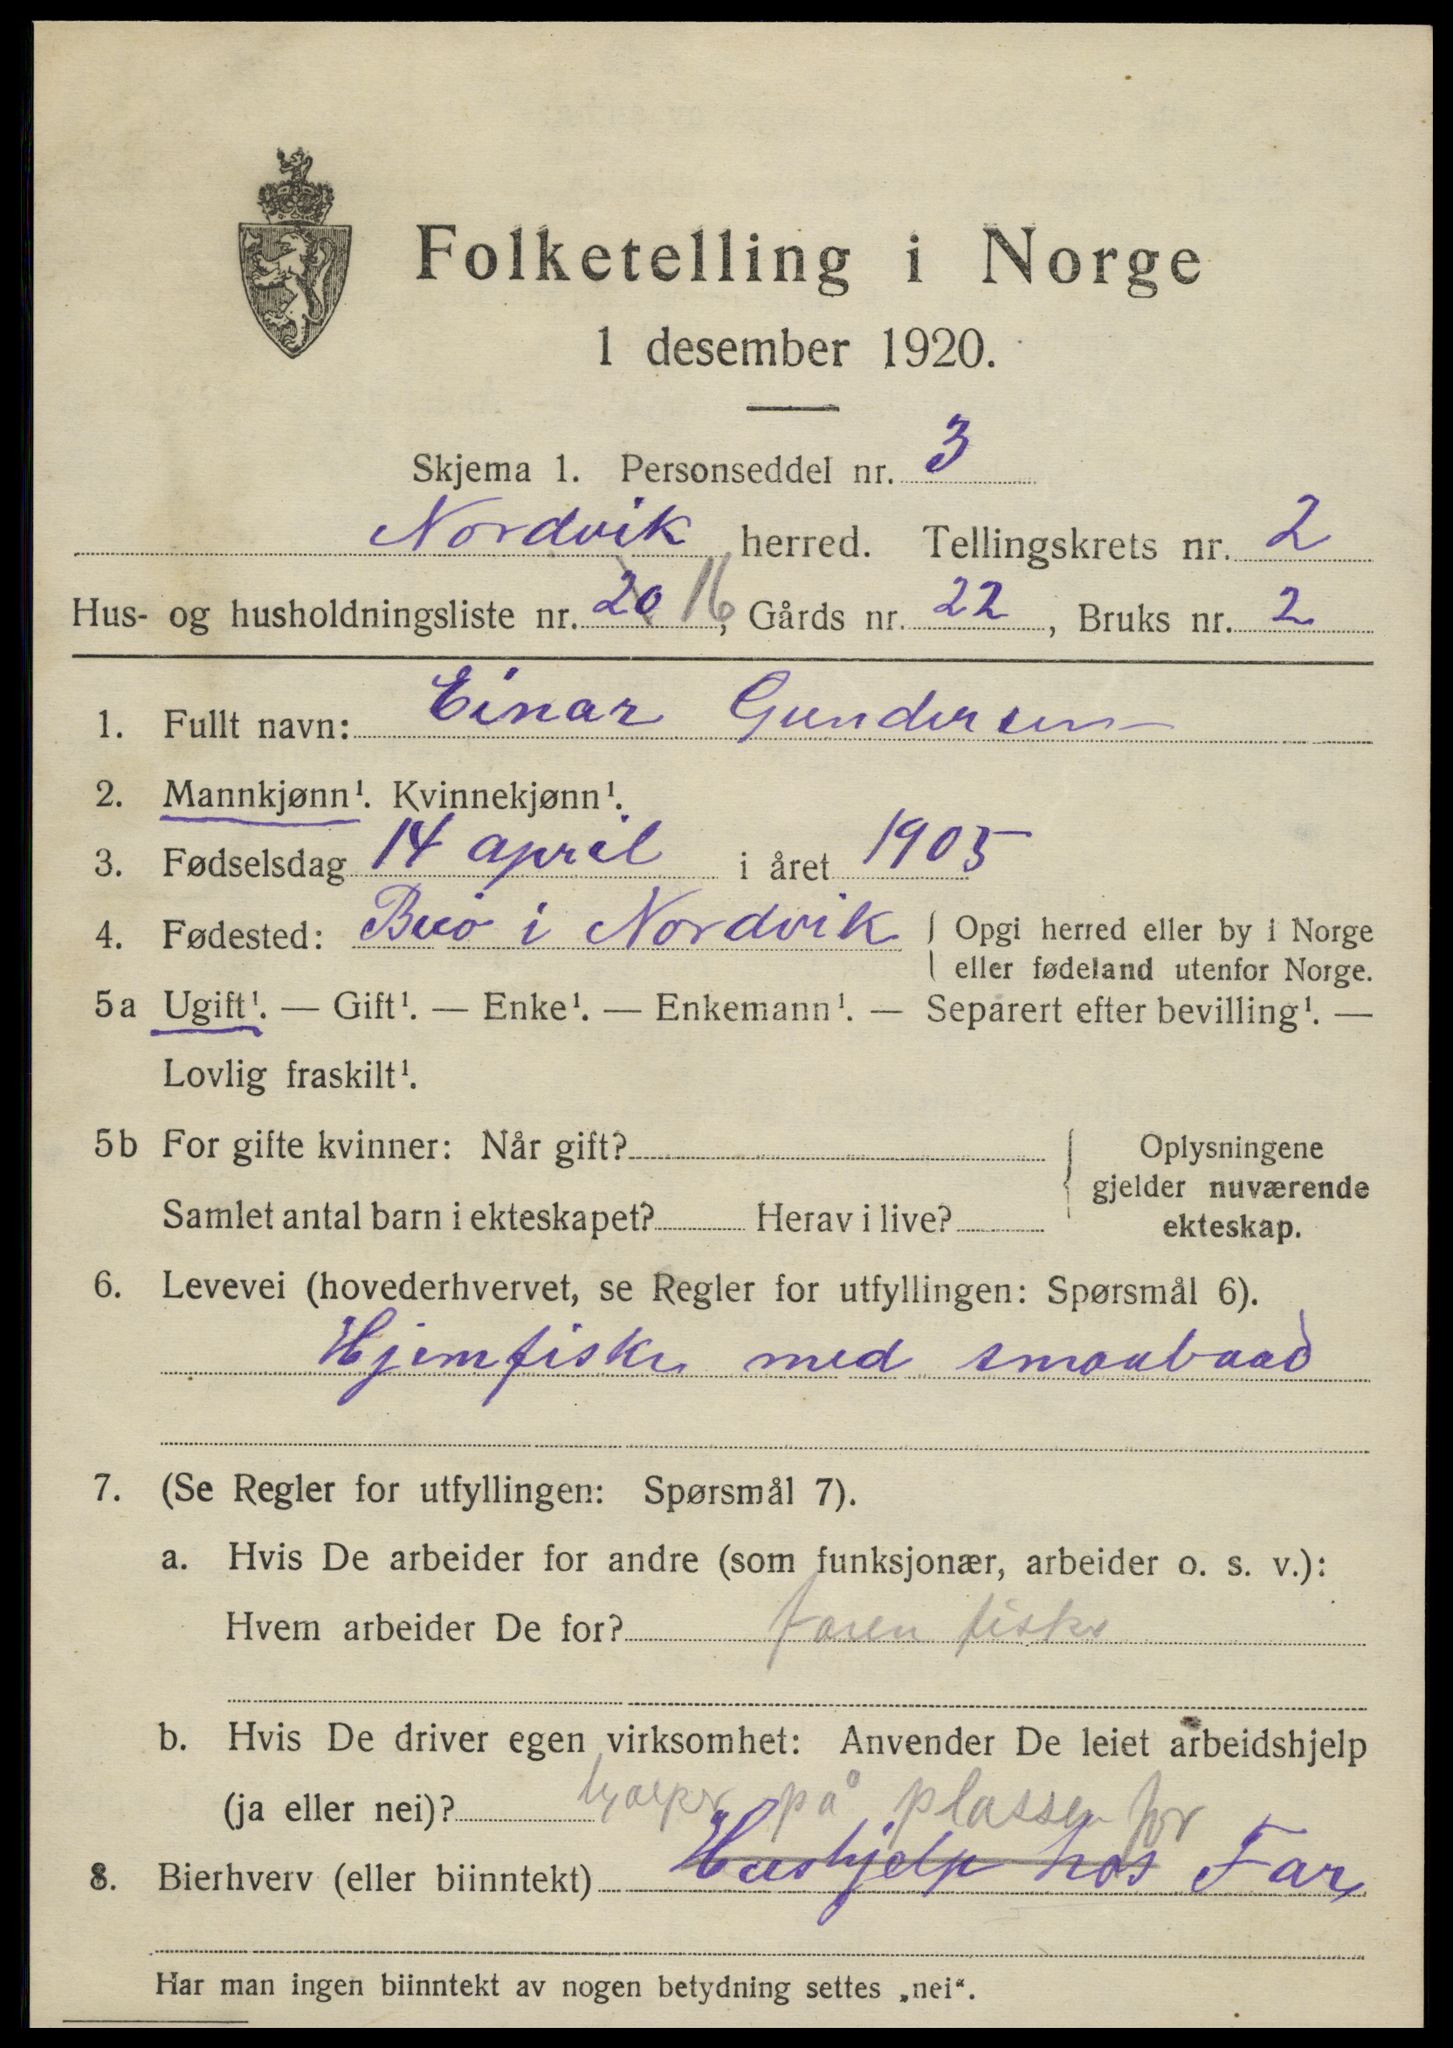 Folketelling i Norge
1 desember 1920.
Skjema 1. Personseddel nr. 3
Nordvik herred. Tellingskrets nr. 2
Hus- og husholdningsliste nr. 20 16, Gårds nr. 22, Bruks nr. 2
1. Fullt navn: Einar Gundersen
2. Mannkjønn¹. Kvinnekjønn¹.
3. Fødselsdag 14 april i året 1905
4. Fødested: i Nordvik { Opgi herred eller by i Norge
eller fødeland utenfor Norge.
5a Ugift¹. — Gift¹. — Enke¹. — Enkemann¹. — Separert efter bevilling¹. —
Lovlig fraskilt¹.
5b For gifte kvinner: Når gift? { Oplysningene
gjelder nuværende
Samlet antal barn i ekteskapet? Herav i live? ekteskap.
6. Levevei (hovederhvervet, se Regler for utfyllingen: Spørsmål 6).
Hjemfiske med smaabaad
7. (Se Regler for utfyllingen: Spørsmål 7).
a. Hvis De arbeider for andre (som funksjonær, arbeider o. s. v.):
Hvem arbeider De for? faren fisker
b. Hvis De driver egen virksomhet: Anvender De leiet arbeidshjelp
(ja eller nei)? hjælper på plassen for
8. Bierhverv (eller biinntekt) Hushjelp hos Far
Har man ingen biinntekt av nogen betydning settes „nei“.